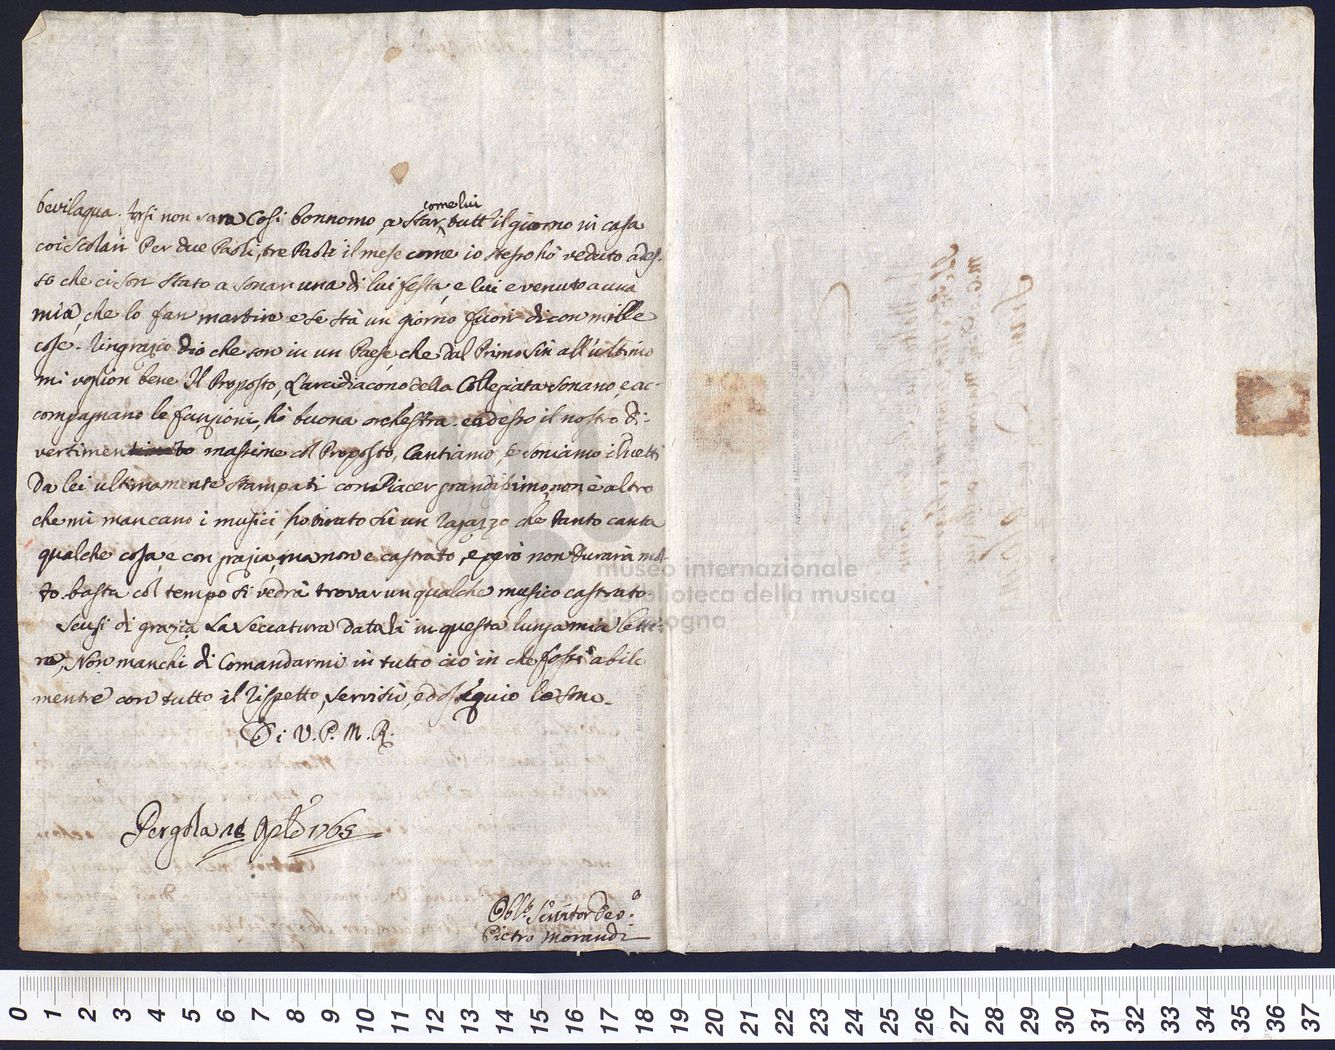 bevilaqua. forsi non sara Cosi bonnomo, a star, come lui tutt'il giorno in casa
coi Scolari Per due Paoli, tre Paoli il mese come io stesso hò veduto ades-
so che ci son stato a sonar una di lui festa, e lui e venuto a una
mia, che lo fan martire e se stà un giorno fuori dicon mille
cose. Ringrazio dio che son in un Paese che dal Primo sin all'ultimo
mi voglion bene Il Proposto, L'arcidiacono della Collegiata Sonano, e ac-
compagnano le funzioni, hò buona orchestra. ed adesso il nostro di-
vertimento massime col Proposto, Cantiamo, e soniamo i duetti
Da lei ultimamente stampati con Piacer grandissimo, non è altro
che mi mancano i musici, ho tirato sù un Ragazzo che tanto canta
qualche cosa, e con grazia, ma non e castrato, e però non durarà mol-
to. basta col tempo si vedrà trovar un qualche musico castrato
Scusi di grazia La Seccatura datali in questa lunga mia lette-
ra, Non manchi di Comandarmi in tutto ciò in che fossi abile
mentre con tutto il rispetto, servitù, ed ossequio le sono.
Di V. P. M. R.
Pergola 18 1765
Servitor
Pietro Morandi
museo internazionale
e biblioteca della musica
di bologna
0 1 2 3 4 5 6 7 8 9 10 11 12 13 14 15 16 17 18 19 20 21 22 23 24 25 26 27 28 29 30 31 32 33 34 35 36 37